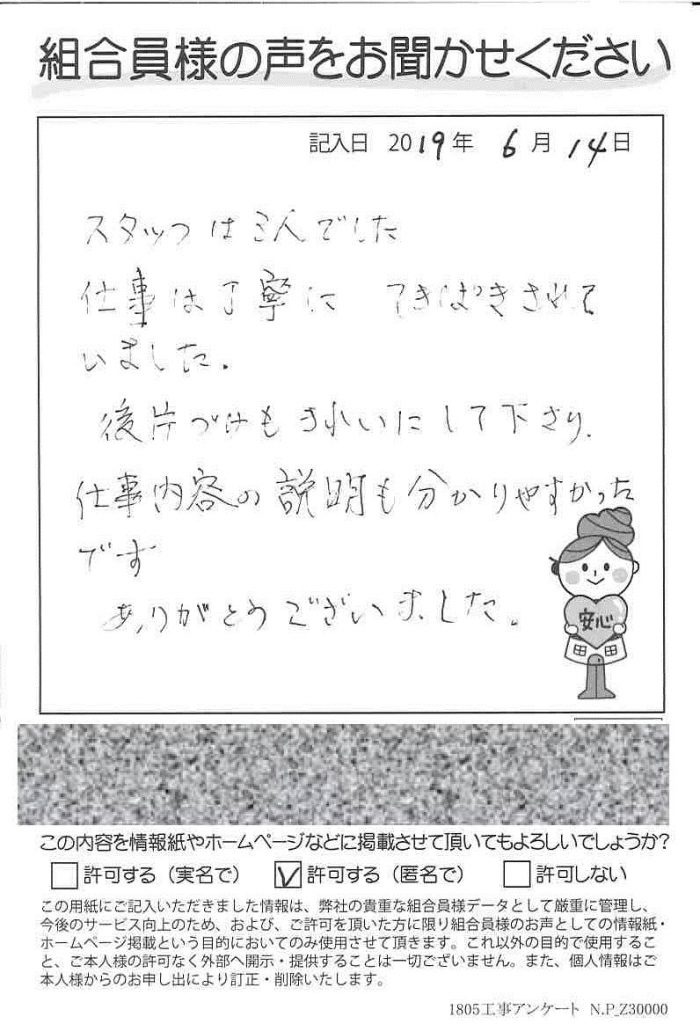 組合員様の声をお聞かせください
記入日 2019年 6月 14日
スタッフは3人でした
仕事は丁寧に てきぱきされて
いました。
後片づけもきれいにして下さり、
仕事内容の説明も分かりやすかった
です
ありがとうございました。
安心
この内容を情報紙やホームページなどに掲載させて頂いてもよろしいでしょうか?
許可する（実名で） 許可する（匿名で） 許可しない
この用紙にご記入いただきました情報は、弊社の貴重な組合員様データとして厳重に管理し、
今後のサービス向上のため、および、ご許可を頂いた方に限り組合員様のお声としての情報紙・
ホームページ掲載という目的においてのみ使用させて頂きます。これ以外の目的で使用するこ
と、ご本人様の許可なく外部へ開示・提供することは一切ございません。また、個人情報はご
本人様からのお申し出により訂正・削除いたします。
1805工事アンケート N.P_Z30000